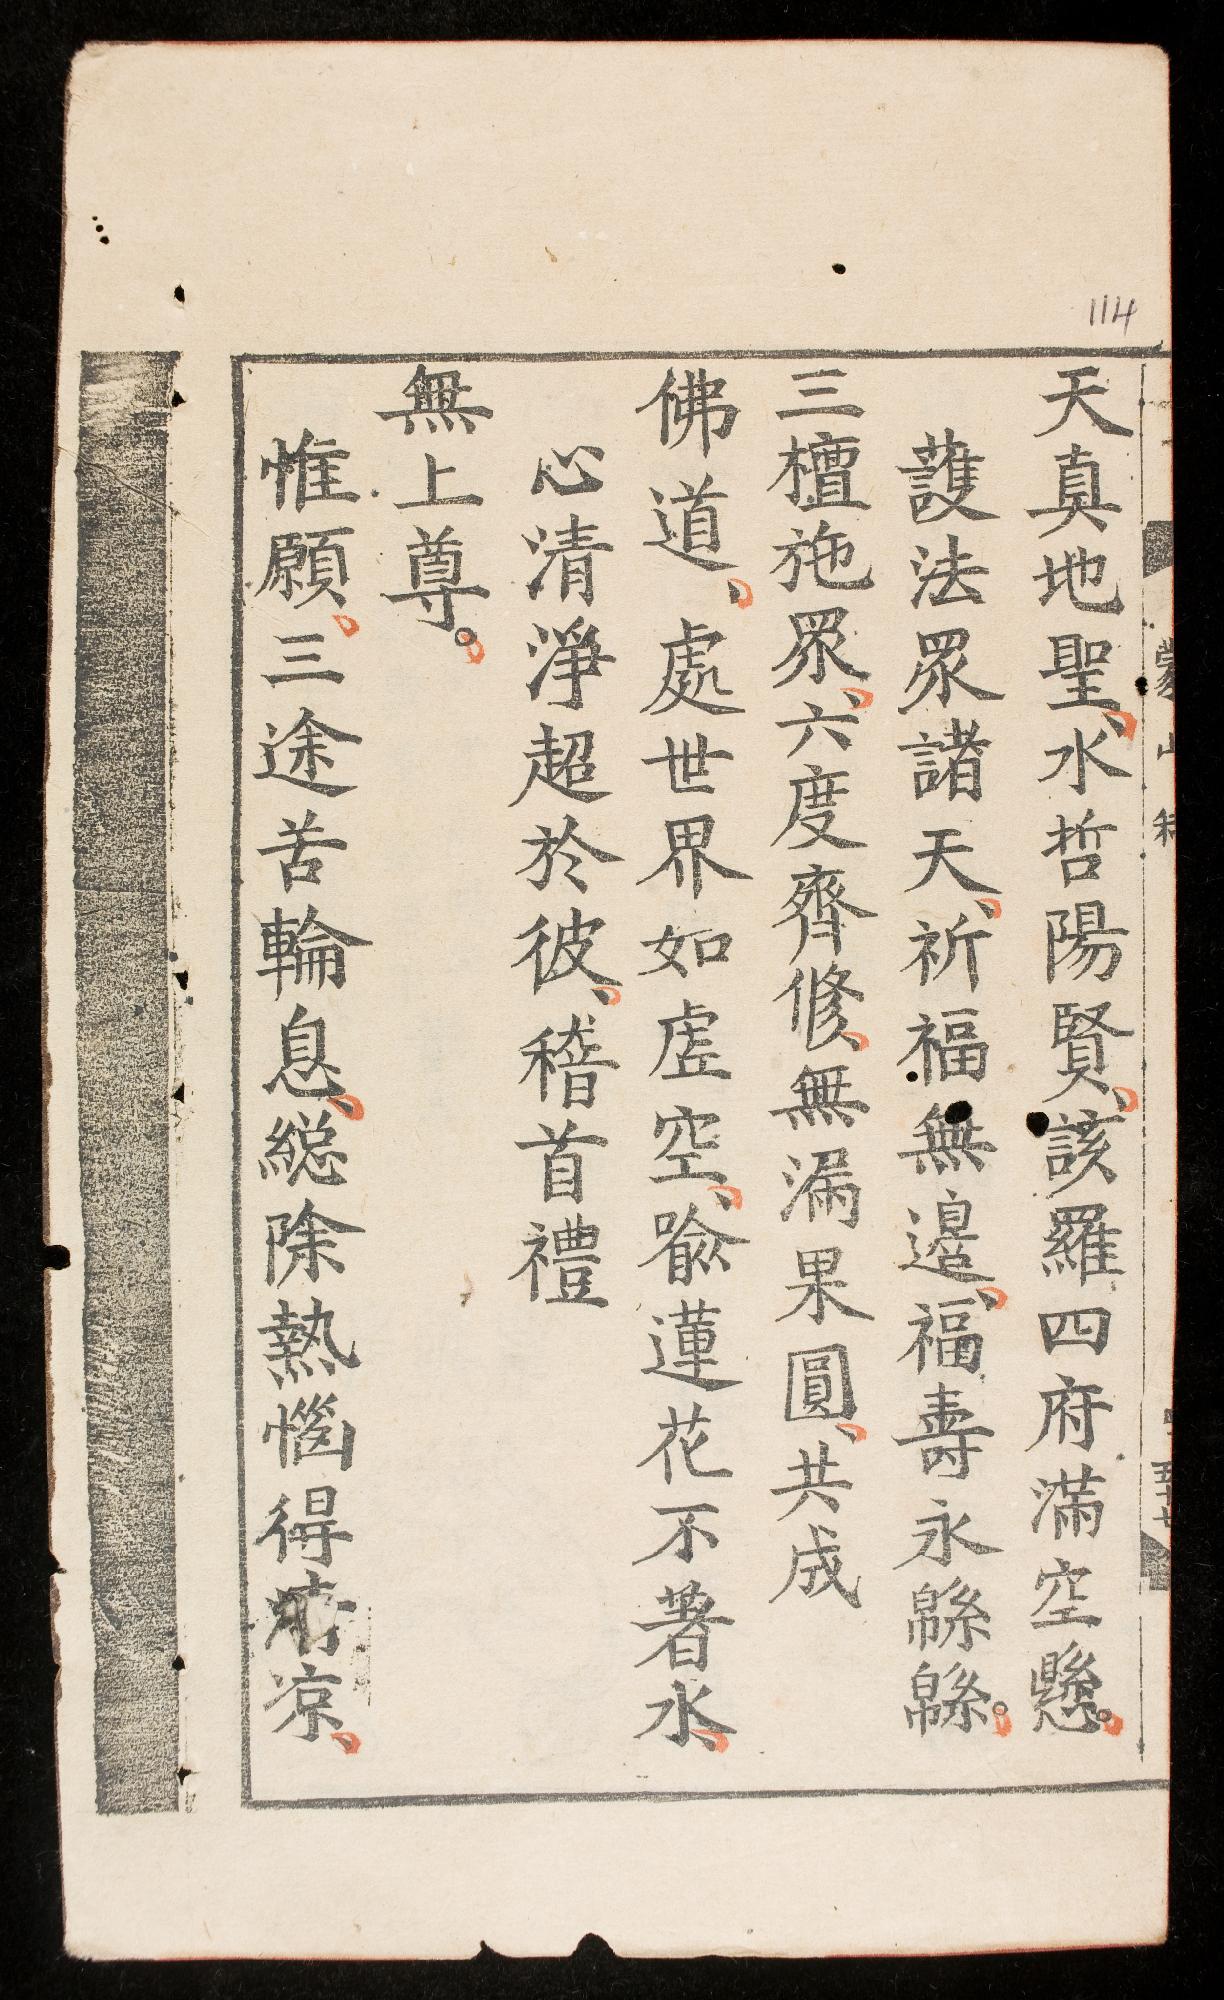 114
天真地聖、水哲陽賢、該羅四府滿空懸。
護法眾諸天、祈福無邊、福壽永緜緜。
三檀施眾、六度齊修、無漏果圓、共成
佛道、處世界如虛空、喻蓮花不著水、
心清淨超於彼、稽首禮
無上尊。
惟願、三途苦輪息、総除熱惱得清凉、